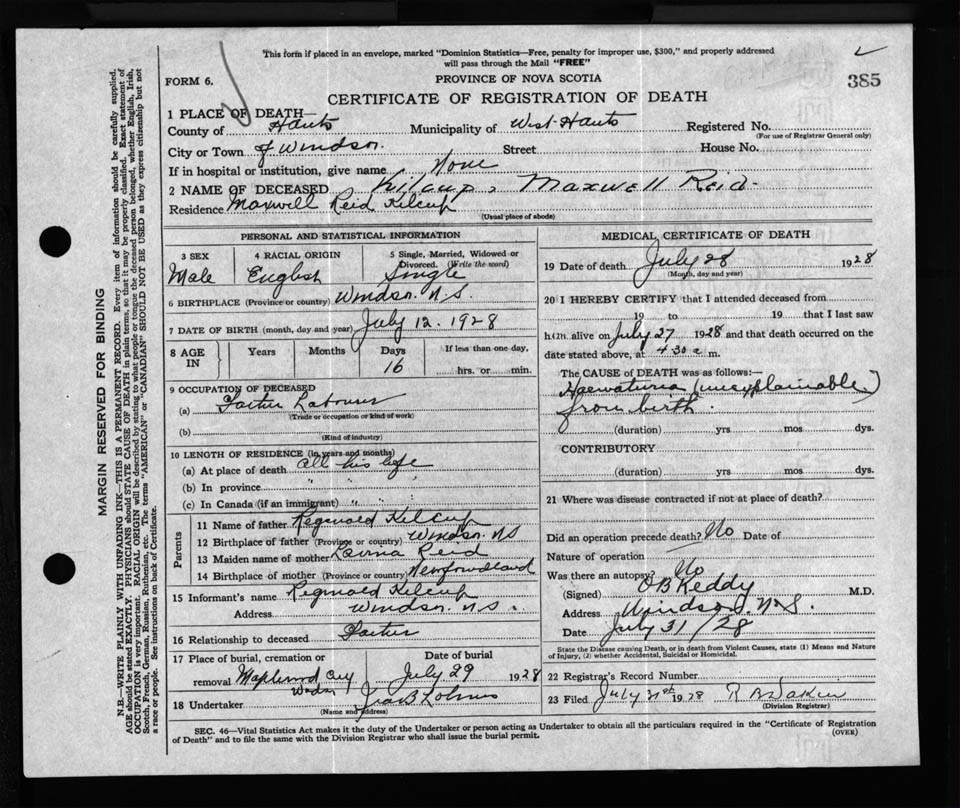 This form if placed in an envelope, marked "Dominion Statistics—Free, penalty for improper use, $300," and properly addressed
will pass through the Mail "FREE"
FORM 6.
PROVINCE OF NOVA SCOTIA
385
CERTIFICATE OF REGISTRATION OF DEATH
1 PLACE OF DEATH—
County of Hants Municipality of West Hants Registered No.
(For use of Registrar General only)
City or Town of Windsor Street House No.
If in hospital or institution, give name None
2 NAME OF DECEASED Kilcup, Maxwell Reid
Residence Maxwell Reid Kilcup
(Usual place of abode)
PERSONAL AND STATISTICAL INFORMATION
3 SEX 4 RACIAL ORIGIN 5 Single, Married, Widowed or Divorced. (Write the word)
Male English Single
6 BIRTHPLACE (Province or country) Windsor. N.S.
7 DATE OF BIRTH (month, day and year) July 12. 1928
8 AGE IN Years Months Days If less than one day,
16 hrs. or min.
9 OCCUPATION OF DECEASED
(a) Labourer
(Trade or occupation or kind of work)
(b)
(Kind of industry)
10 LENGTH OF RESIDENCE (in years and months)
(a) At place of death all his life
(b) In province " " "
(c) In Canada (if an immigrant) " " "
Parents
11 Name of father Reginald Kilcup
12 Birthplace of father (Province or country) Windsor. NS
13 Maiden name of mother Reid
14 Birthplace of mother (Province or country) Newfoundland
15 Informant's name Reginald Kilcup
Address Windsor. N.S.
16 Relationship to deceased
17 Place of burial, cremation or removal Date of burial
Maplewood Cey July 29 1928
Windsor
18 Undertaker
(Name and address)
MEDICAL CERTIFICATE OF DEATH
19 Date of death July 28 1928
(Month, day and year)
20 I HEREBY CERTIFY that I attended deceased from
19 to 19 that I last saw
him alive on July 27 1928 and that death occurred on
date stated above, at 4 30 a m.
The CAUSE of DEATH was as follows:—
Haematuria (unexplainable)
from birth.
(duration) yrs mos dys.
CONTRIBUTORY
(duration) yrs mos dys.
21 Where was disease contracted if not at place of death?
Did an operation precede death? No Date of
Nature of operation
Was there an autopsy? No
(Signed) O B Keddy M.D.
Address Windsor, N.S.
Date July 31/28
State the Disease causing Death, or in death from Violent Causes, state (1) Means and Nature
of Injury, (2) whether Accidental, Suicidal or Homicidal.
22 Registrar's Record Number
23 Filed July 31st 1928
(Division Registrar)
SEC. 46—Vital Statistics Act makes it the duty of the Undertaker or person acting as Undertaker to obtain all the particulars required in the "Certificate of Registration
of Death" and to file the same with the Division Registrar who shall issue the burial permit.
(OVER)
MARGIN RESERVED FOR BINDING
N.B.—WRITE PLAINLY WITH UNFADING INK—THIS IS A PERMANENT RECORD. Every item of information should be carefully supplied.
AGE should be stated EXACTLY. PHYSICIANS should STATE CAUSE OF DEATH in plain terms, so that it may be properly classified. Exact statement of
OCCUPATION is very important. RACIAL ORIGIN will be described by stating to what people or tongue the deceased person belonged, whether English, Irish,
Scotch, French, German, Russian, Ruthenian, etc. The terms "AMERICAN" or "CANADIAN" SHOULD NOT BE USED as they express citizenship but not
a race or people. See instructions on back of Certificate.